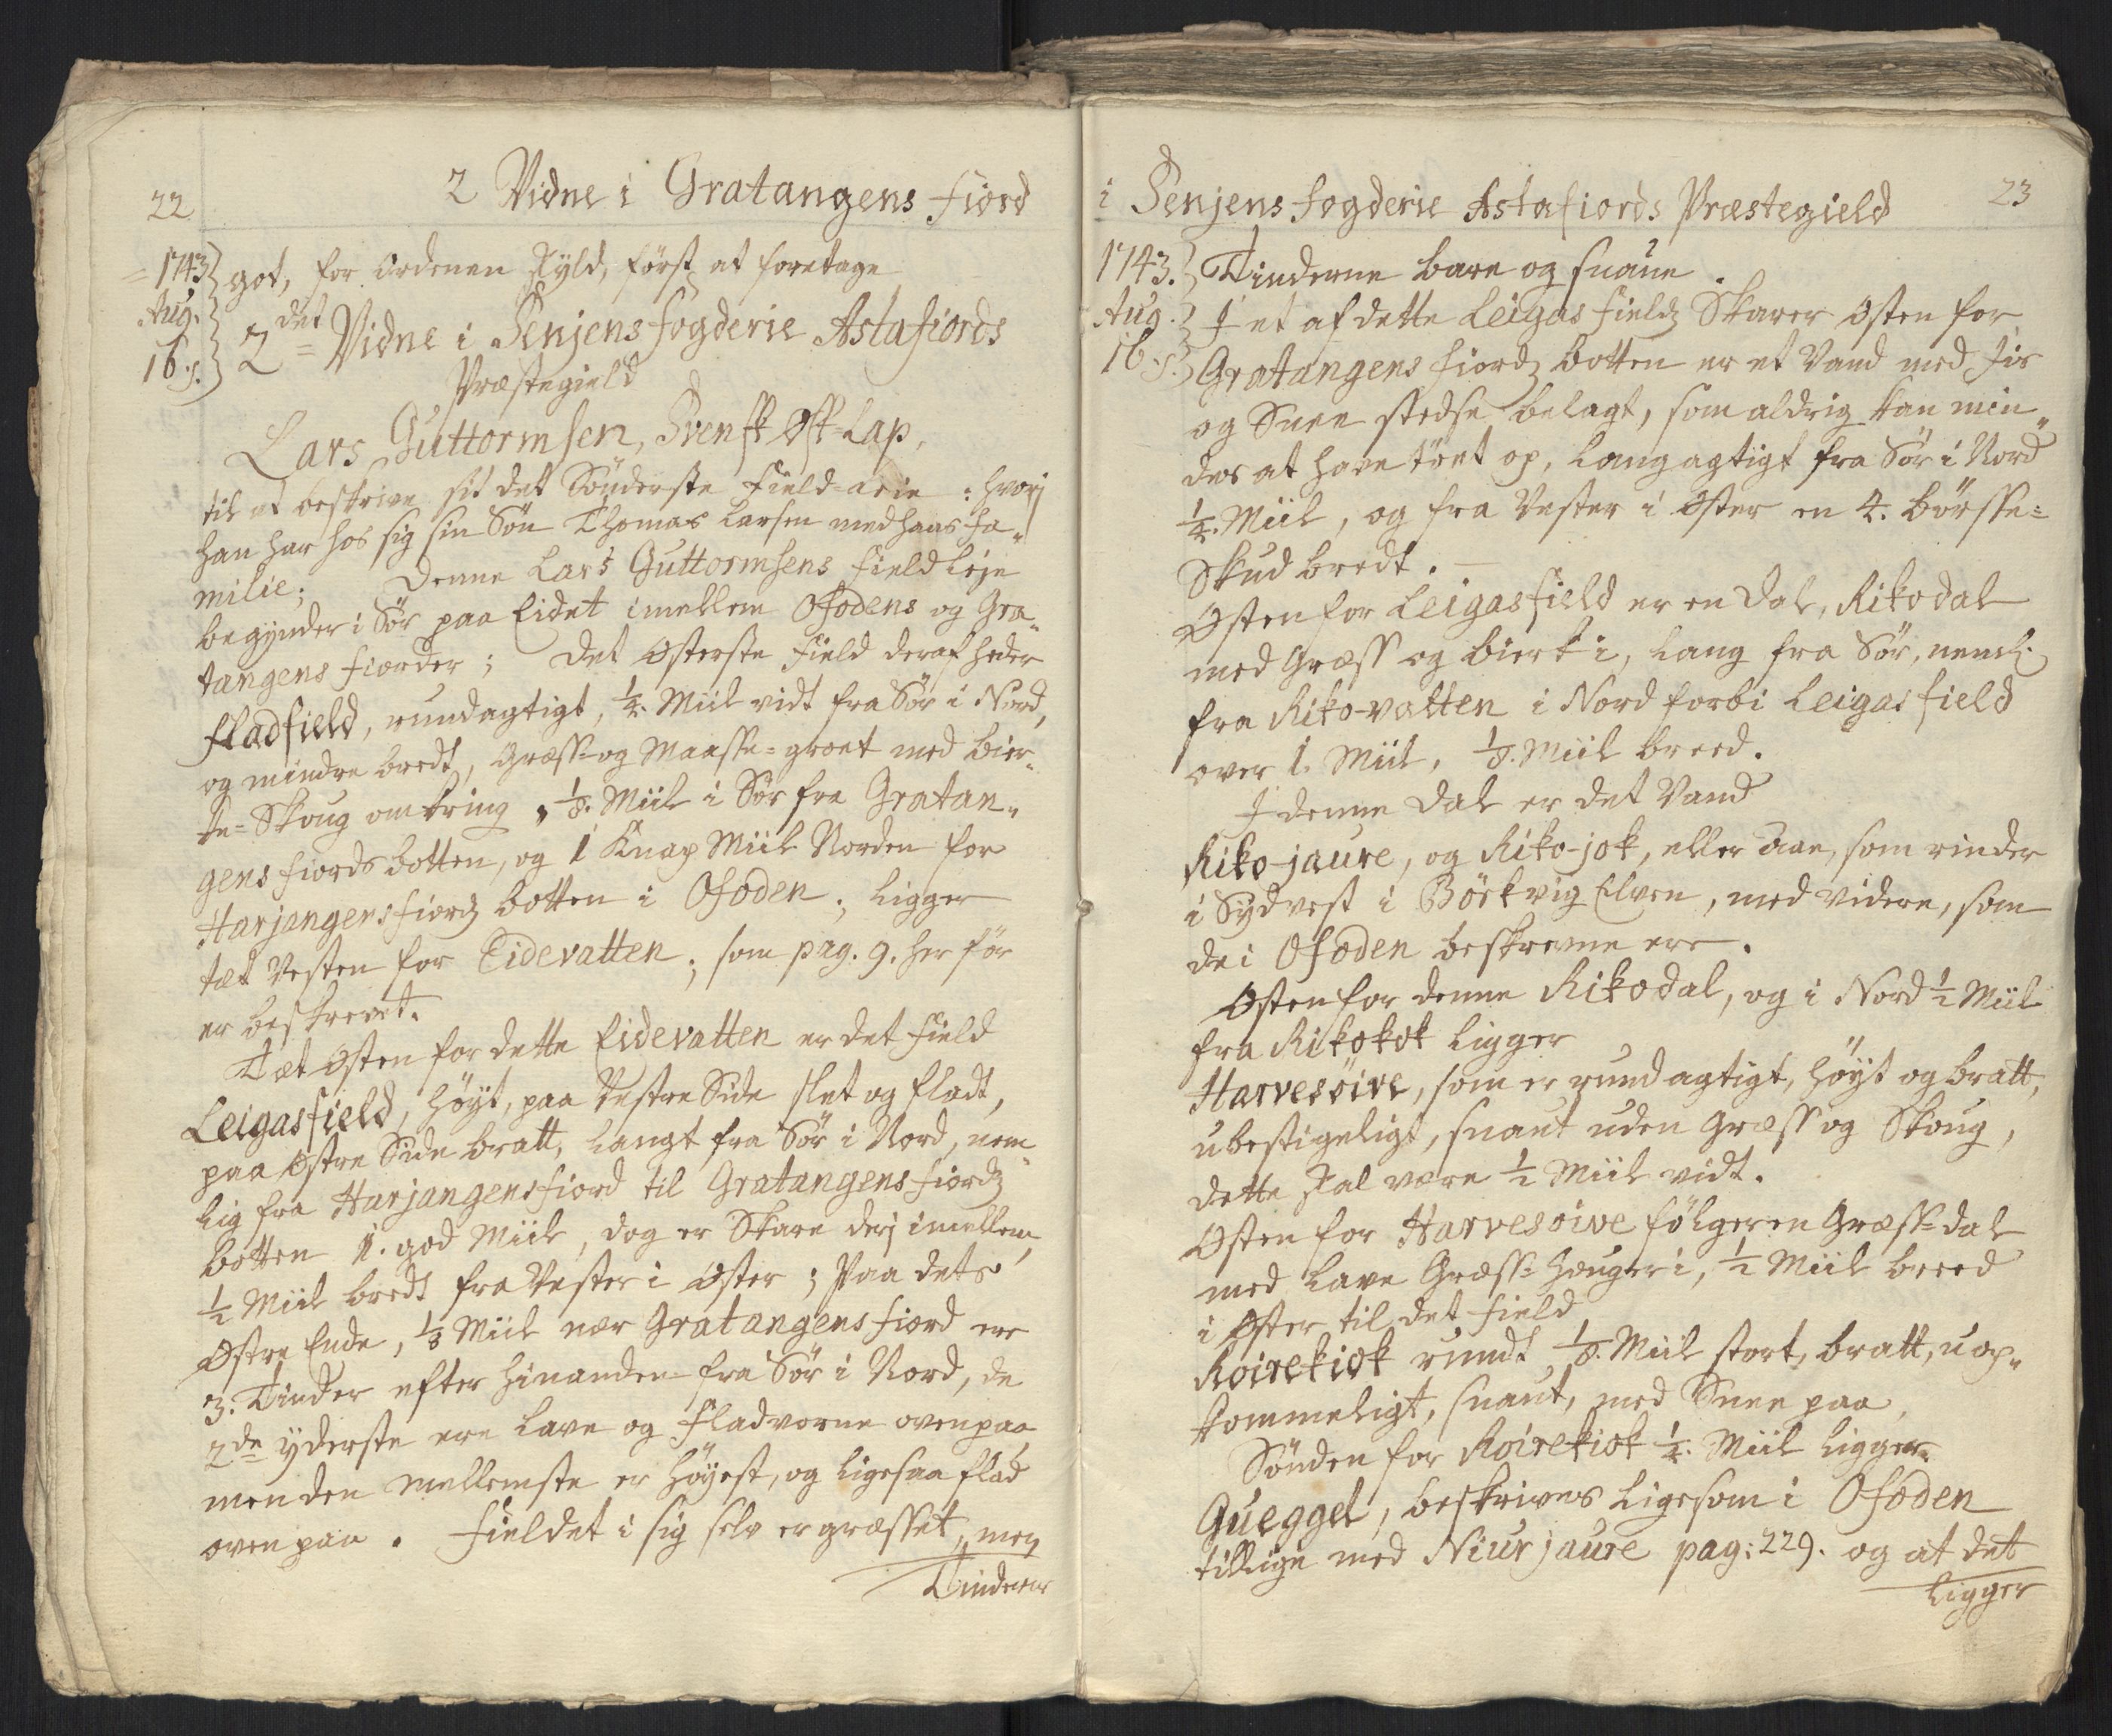 22
2 Vidne i Gratangens Fiord
1743
Aug.
16. s.
got, for Ordenen skyld, først at foretage
2det Vidne i Senjens Fogderie Astafiords
Præstegield
Lars Guttormsen, Svensk Ost-Lap,
til at beskrive sit det Sönderste Field-leie : hvorj
han har hos sig sin Sön Thomas Larsen med hans fa„
milie; Denne Lars Guttormsens Field Leje
begynder i Sör paa Eidet imellem Ofodens og Gra„
tangens Fiorder; Det Osterste Field deraf heder
Fladfield, rundagtigt, 1/4. Miil vidt fra Sör i Nord,
og mindre bredt, Græss- og Maasse-groet med bier„
ke-Skoug omkring, 1/8. Miil i Sör fra Gratan„
gens fiords botten, og 1 Knap Miil Norden for
Harjangens fiordz botten i Ofoden; ligger
tæt Vesten for Eidevatten; som pag. 9. her för
er beskrevet.
Tæt Osten for dette Eidevatten er det Field
Leigasfield, höyt, paa Vestre Side slet og fladt,
paa Ostre Side bratt, langt fra Sör i Nord, nem„
lig fra Harjangensfiord til Gratangens fiordz
botten 1. god Miil, dog er Skare derj imellem,
1/2 Miil bredt fra Vester i Oster; Paa dets
Ostre Ende, 1/8 Miil nær Gratangens fiord ere
3. Tinder efter hinanden fra Sör i Nord, de
2de yderste ere lave og Fladvorne ovenpaa
men den mellemste er höyest, og ligesaa flad
oven paa. Fieldet i sig selv er græsset, men
Tinderne
i Senjens Fogderie Astafiords Præstegield
23
1743.
Aug.
16. s.
Tinderne bare og snaue.
I et af dette Leigas fieldz Skarer Osten for
Gratangens fiordz botten er et Vand med Jis
og Snee stedse belagt, som aldrig kan min„
des at have töet op, langagtigt fra Sör i Nord
1/4. Miil, og fra Vester i Oster en 4. börsse-
Skud bredt.
Osten for Leigasfield er en Dal, Rikodal
med Græss og bierk i, lang fra Sör, neml.
fra Riko-vatten i Nord forbi Leigasfield
over 1. Miil, 1/8. Miil breed.
I denne Dal er det Vand
Riko-jaure, og Riko-jok, eller Aae, som rinder
i Sydvest i Börkvig Elven, med videre, som
de i Ofoden beskrevne ere.
Osten for denne Rikodal, og i Nord 1/2 Miil
fra Rikokok ligger
Harvesöive, som er rundagtigt, höyt og bratt,
ubestigeligt, snaut uden Græss og Skoug,
dette skal være 1/2 Miil vidt.
Osten for Harvesoive fölger en Græss-dal
med lave Græss-hauger i, 1/2 Miil breed
i Oster til det Field
Roirekiok rundt 1/8. Miil stort, bratt, uop„
kommeligt, snaut, med Snee paa,
Sönden for Roirekiok 1/4. Miil ligger
Gueggel, beskrives ligesom i Ofoden
tillige med Niurjaure pag: 229. og at det
ligger